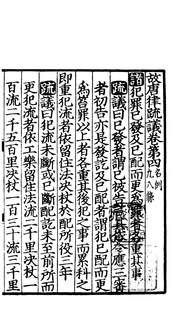 故唐律疏議卷第四 名例 凡八條
諸犯罪已發及已配而更為罪者各重其事
疏議曰犯罪已發者謂已被告言其依令應三審
者初告亦是發訖及已配者謂已配而更
為笞罪以上者各重其後犯之事而累科之
即重犯流者依留住法決杖於配所役三年
疏議曰犯流未斷或已斷配訖未至前所而
更犯流者依工樂留住法流二千里決杖一
百流二千五百里決杖一百三十流三千里